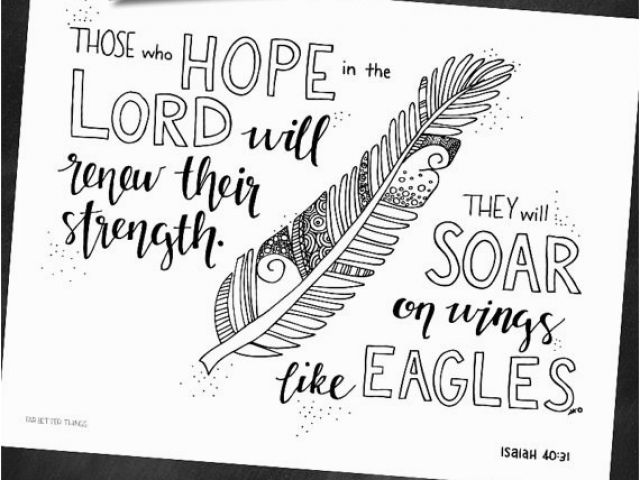 THOSE who HOPE in the
LORD will
renew their
strength.
THEY will
SOAR
on wings
like EAGLES.
FAR BETTER THINGS
ISAIAH 40:31